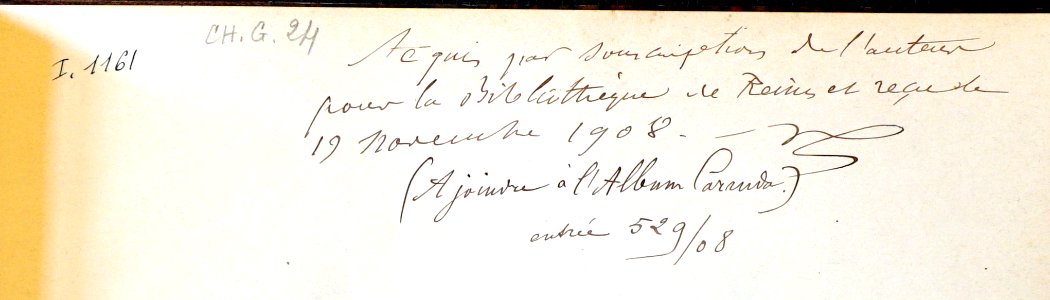 CH. G. 24
I. 1161
Acquis par souscription de l'auteur
pour la Bibliothèque de Reims et reçu le
19 novembre 1908. —
(A joindre à l'Album Caranda.)
entrée 529/08